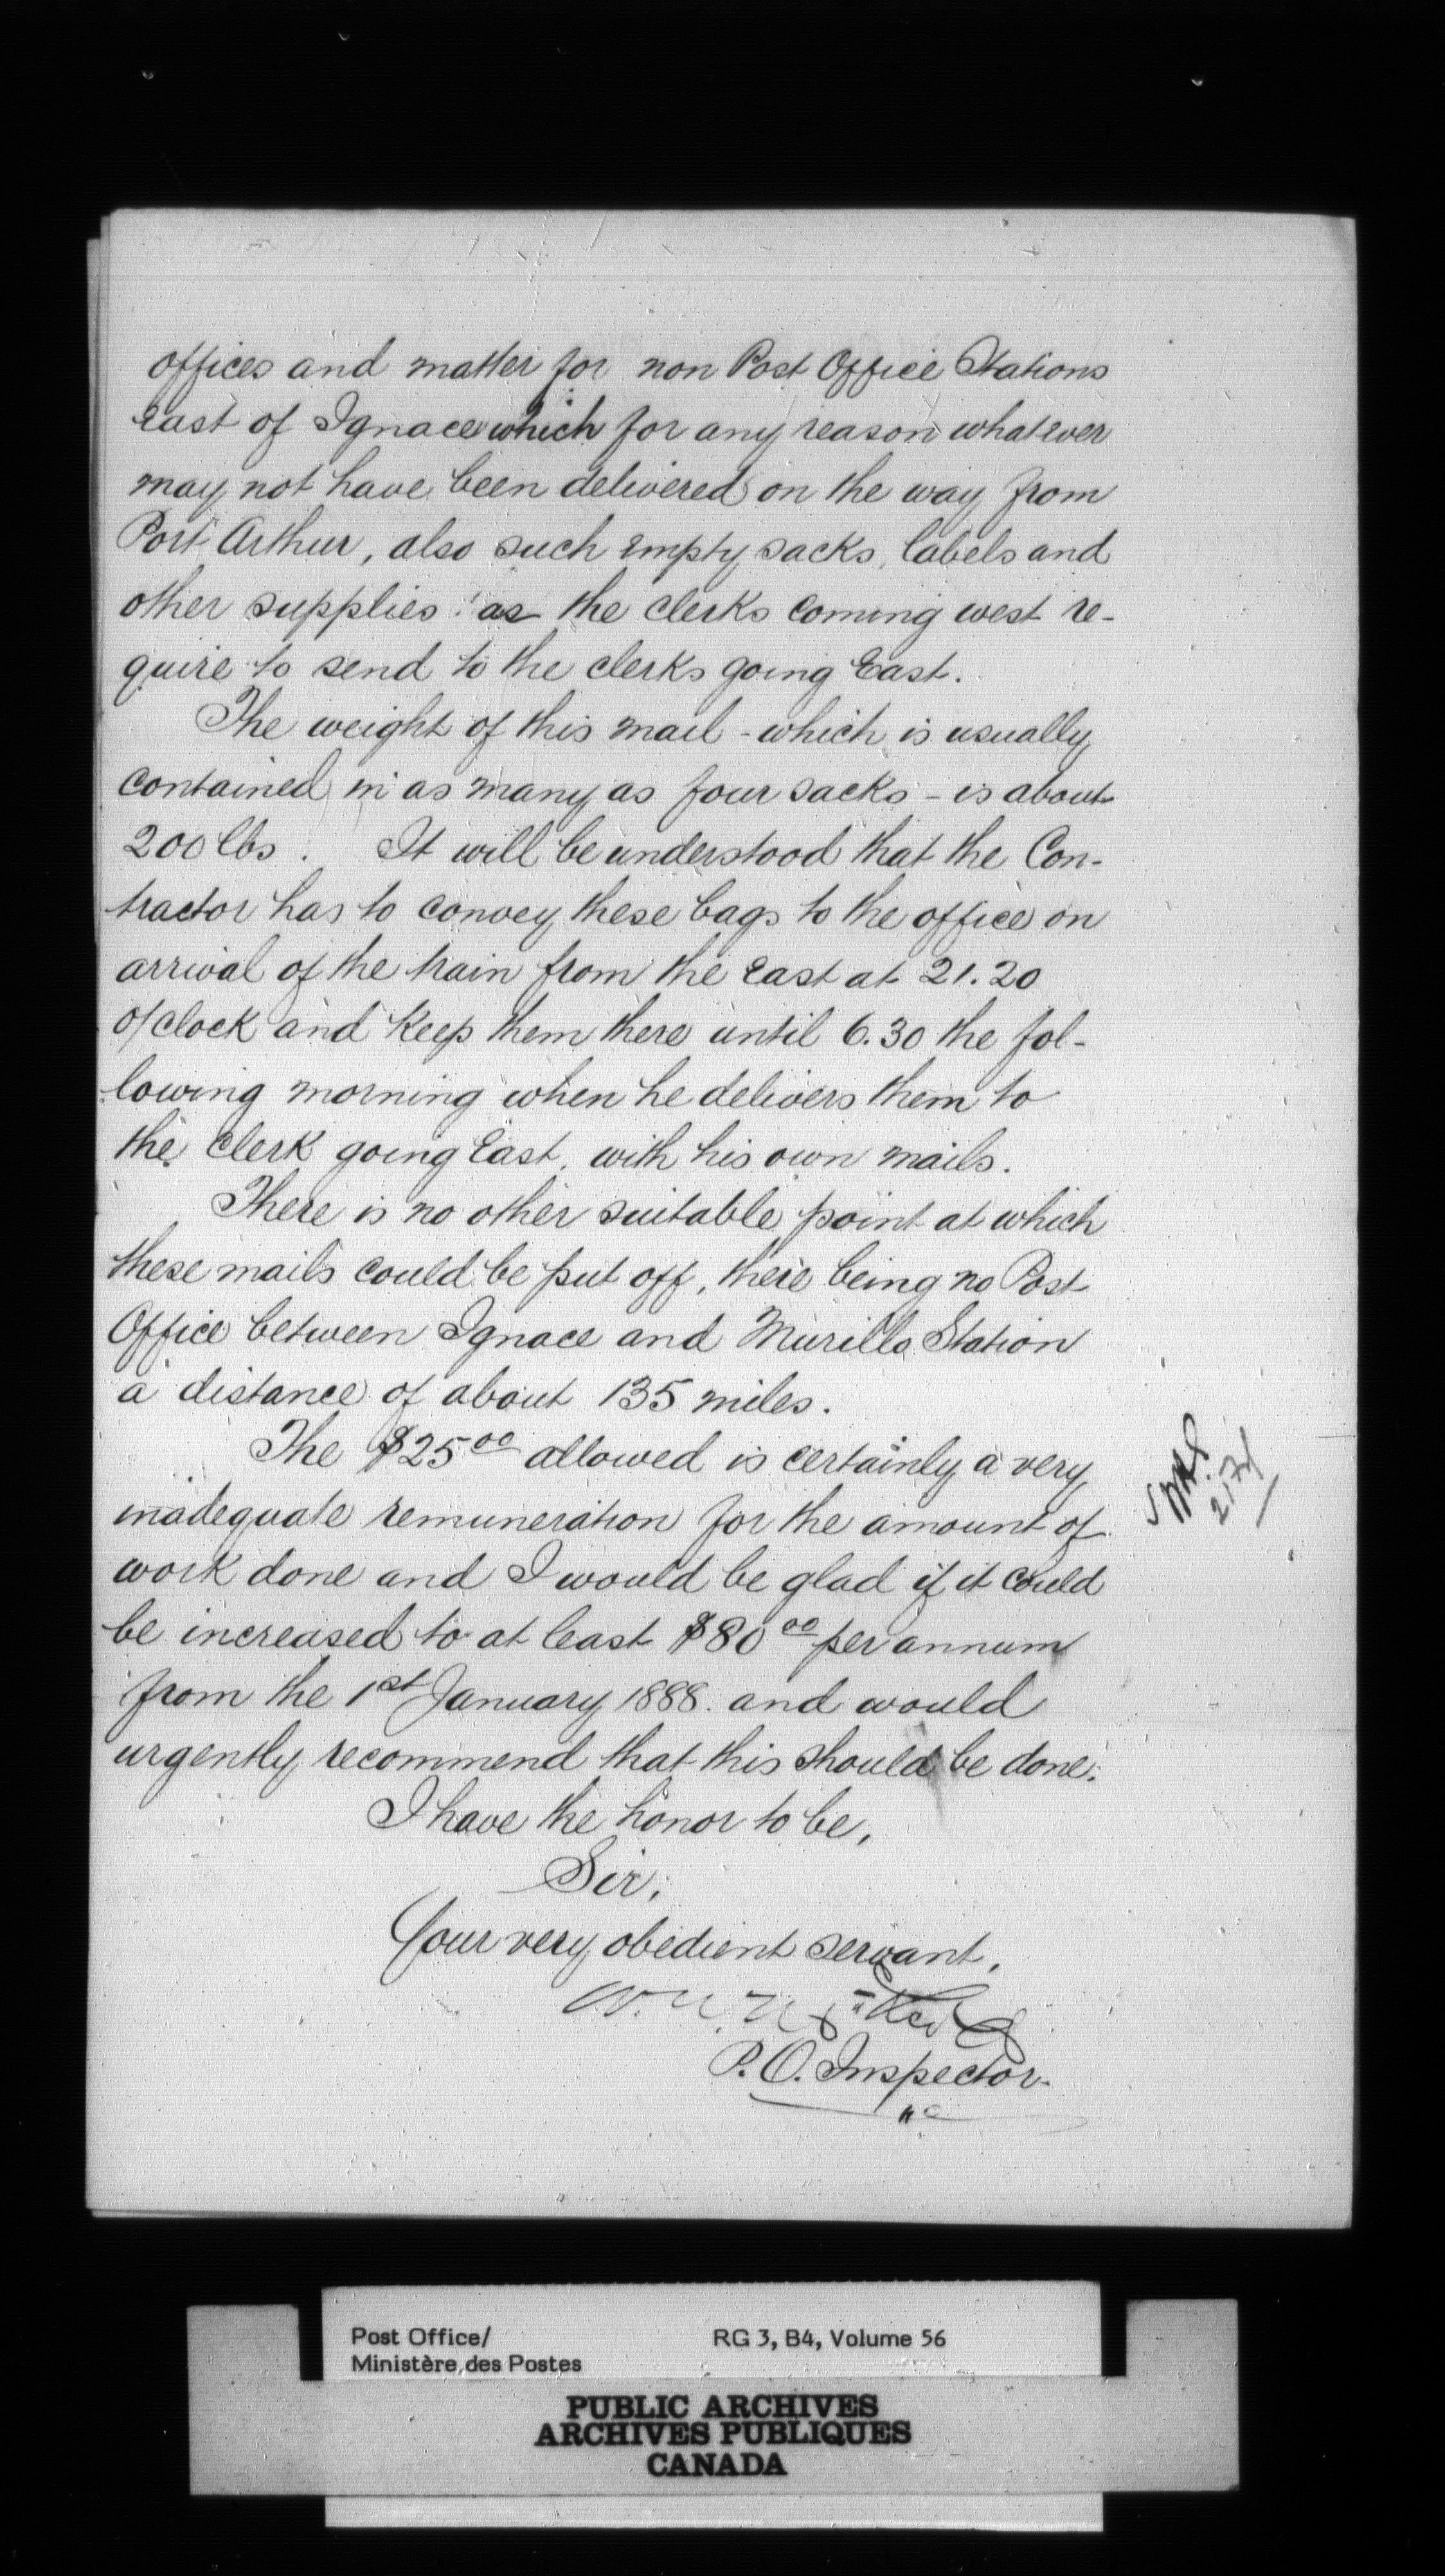 offices and matter for non Post Office Stations
east of Ignace which for any reason whatever
may not have been delivered on the way from
Port Arthur, also such empty sacks, labels and
other supplies as the clerks coming west re-
quire to send to the clerks going East.
The weight of this mail - which is usually
contained in as many as four sacks - is about
200 lbs. It will be understood that the Con-
tractor has to convey these bags to the office on
arrival of the train from the East at 21.20
o/clock and keep them there until 6.30 the fol-
lowing morning when he delivers them to
the clerk going East, with his own mails.
There is no other suitable point at which
these mails could be put off, there being no Post
Office between Ignace and Murillo Station
a distance of about 135 miles.
The $25 00 allowed is certainly a very
inadequate remuneration for the amount of
work done and I would be glad if it could
be increased to at least $80 00 per annum
from the 1st January 1888. and would
urgently recommend that this should be done.
I have the honor to be,
Sir,
Your very obedient servant,
P. O. Inspector.
Post Office/ RG 3, B4, Volume 56
Ministère des Postes
PUBLIC ARCHIVES
ARCHIVES PUBLIQUES
CANADA